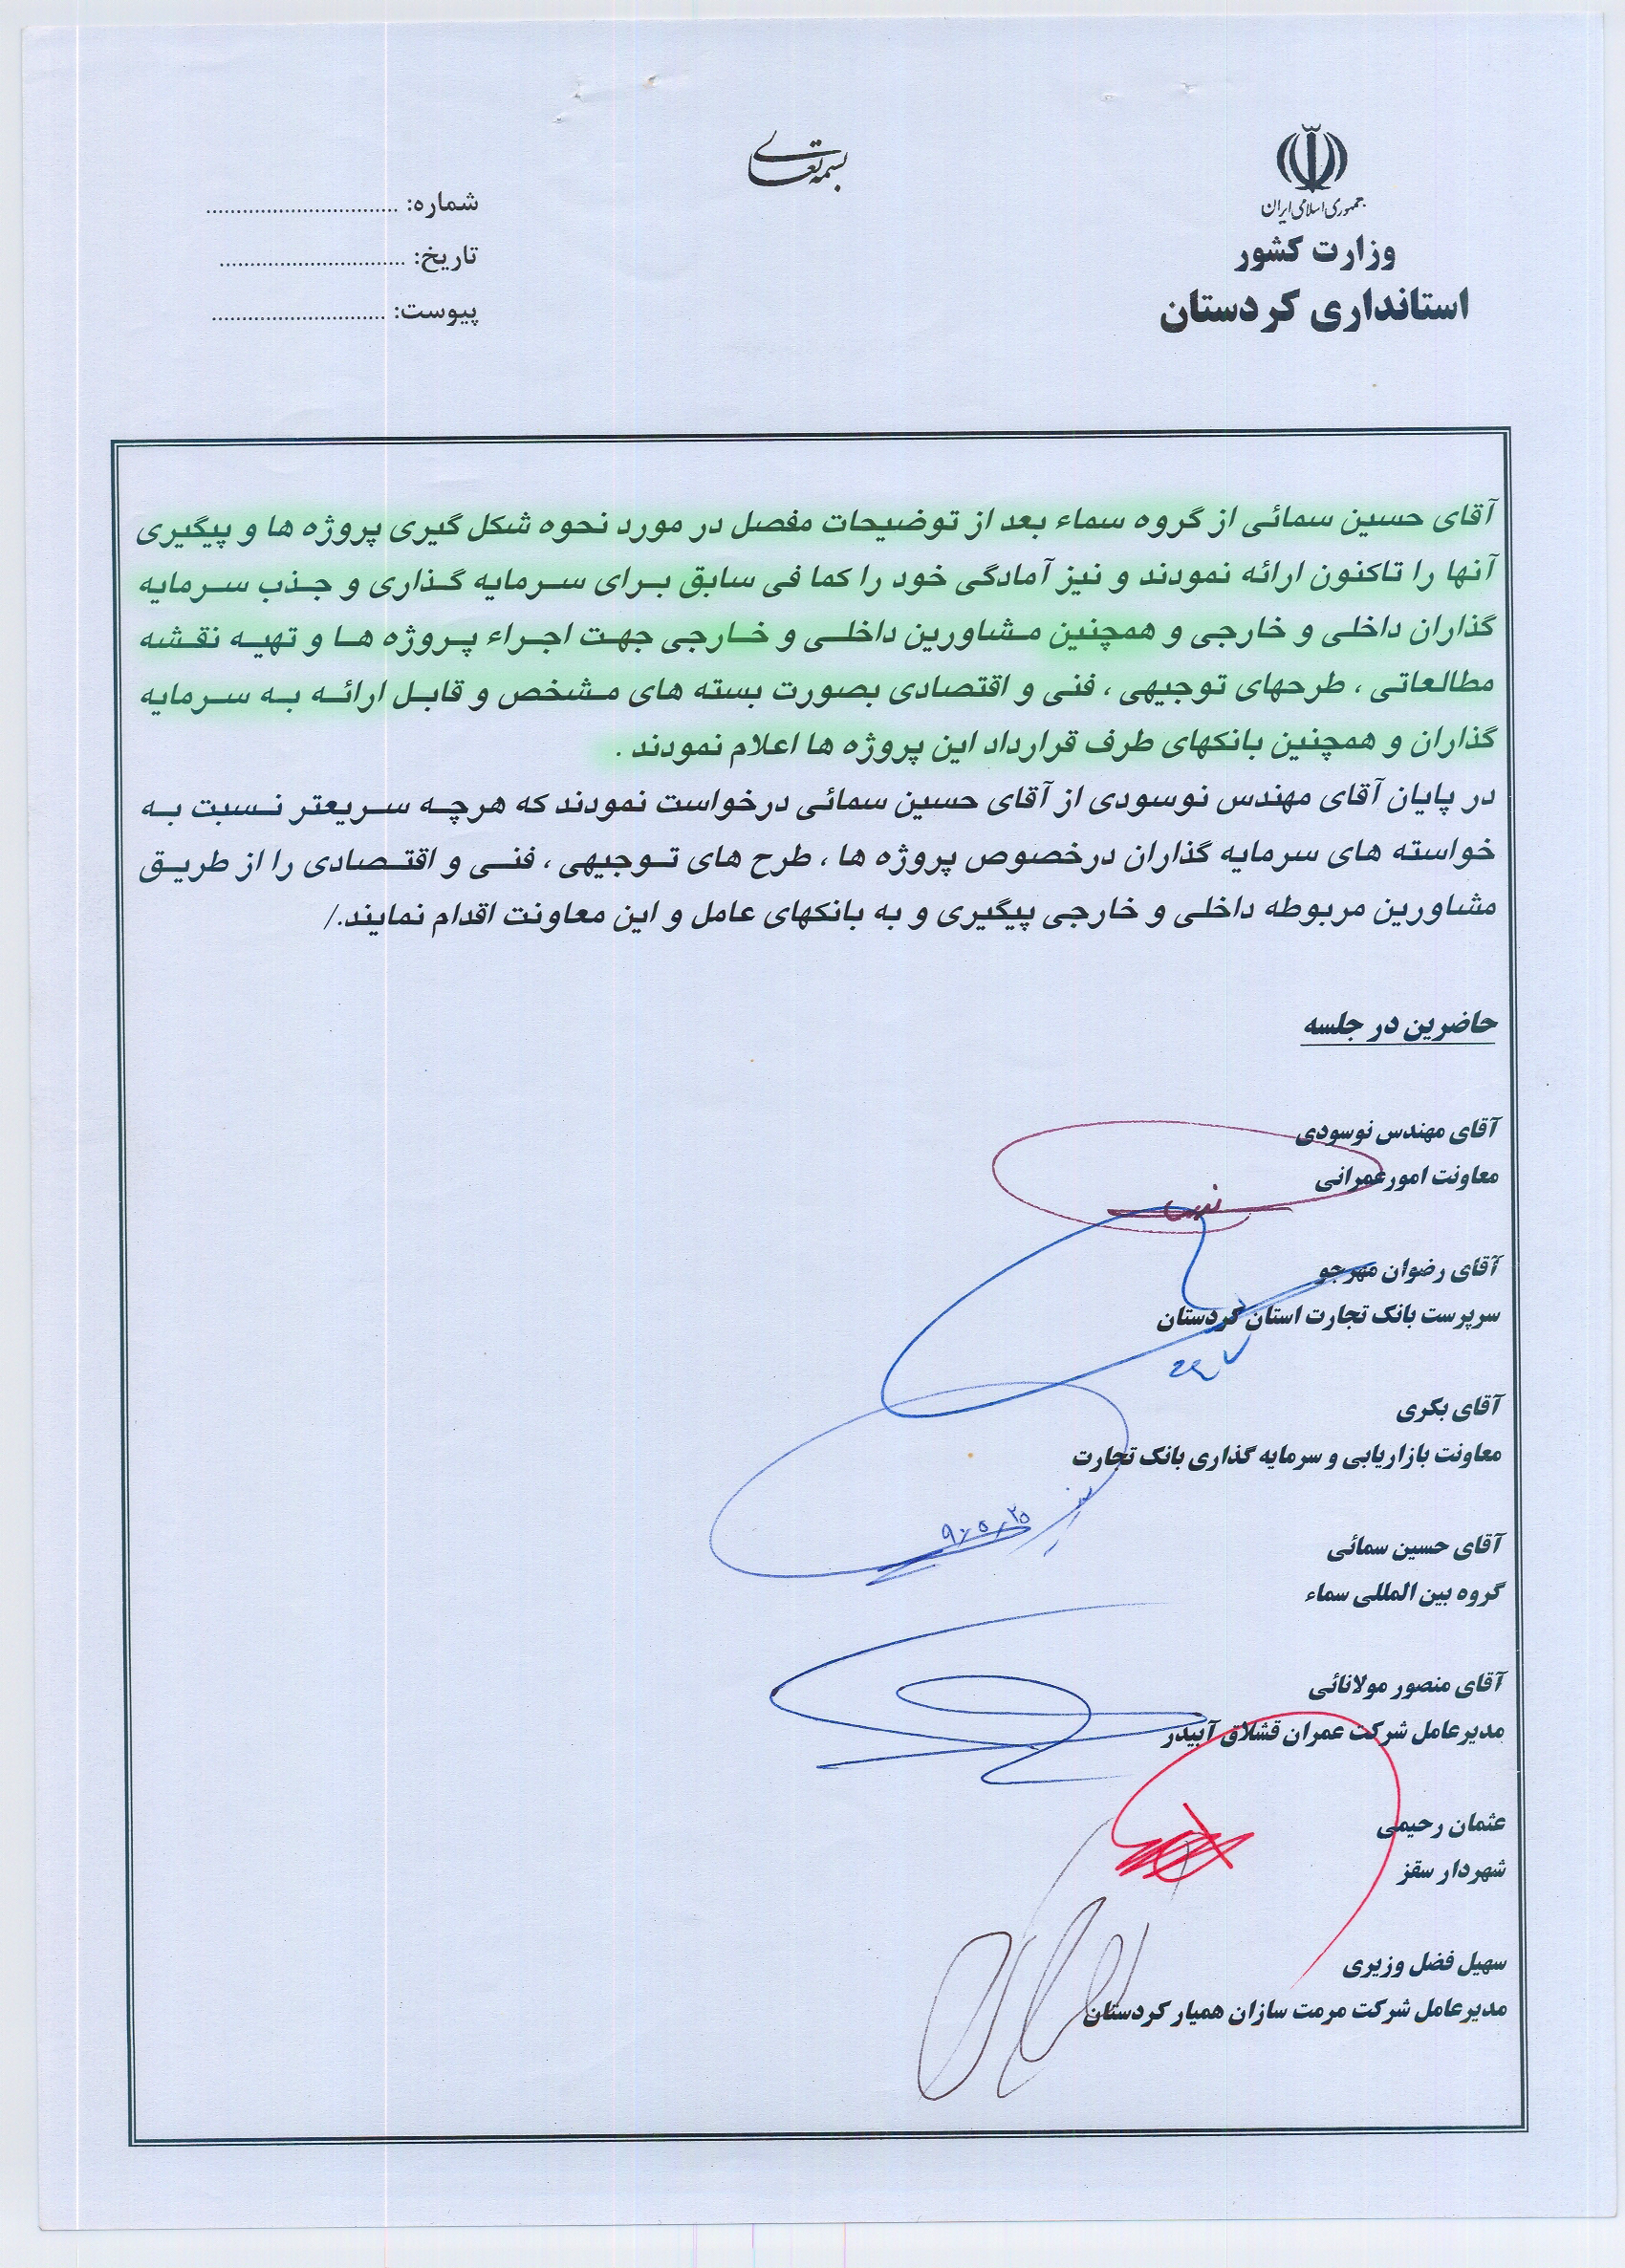 بسمه تعالی
جمهوری اسلامی ایران
وزارت کشور
استانداری کردستان
شماره: ................................
تاریخ: ................................
پیوست: ................................
آقای حسین سمائی از گروه سماء بعد از توضیحات مفصل در مورد نحوه شکل گیری پروژه ها و پیگیری
آنها را تاکنون ارائه نمودند و نیز آمادگی خود را کما فی سابق برای سرمایه گذاری و جذب سرمایه
گذاران داخلی و خارجی و همچنین مشاورین داخلی و خارجی جهت اجراء پروژه ها و تهیه نقشه
مطالعاتی ، طرحهای توجیهی ، فنی و اقتصادی بصورت بسته های مشخص و قابل ارائه به سرمایه
گذاران و همچنین بانکهای طرف قرارداد این پروژه ها اعلام نمودند .
در پایان آقای مهندس نوسودی از آقای حسین سمائی درخواست نمودند که هرچه سریعتر نسبت به
خواسته های سرمایه گذاران درخصوص پروژه ها ، طرح های توجیهی ، فنی و اقتصادی را از طریق
مشاورین مربوطه داخلی و خارجی پیگیری و به بانکهای عامل و این معاونت اقدام نمایند./
حاضرین در جلسه
آقای مهندس نوسودی
معاونت امورعمرانی
آقای رضوان مهرجو
سرپرست بانک تجارت استان کردستان
آقای بکری
معاونت بازاریابی و سرمایه گذاری بانک تجارت
آقای حسین سمائی
گروه بین المللی سماء
آقای منصور مولانائی
مدیرعامل شرکت عمران قشلاق آبیدر
عثمان رحیمی
شهردار سقز
سهیل فضل وزیری
مدیرعامل شرکت مرمت سازان همیار کردستان